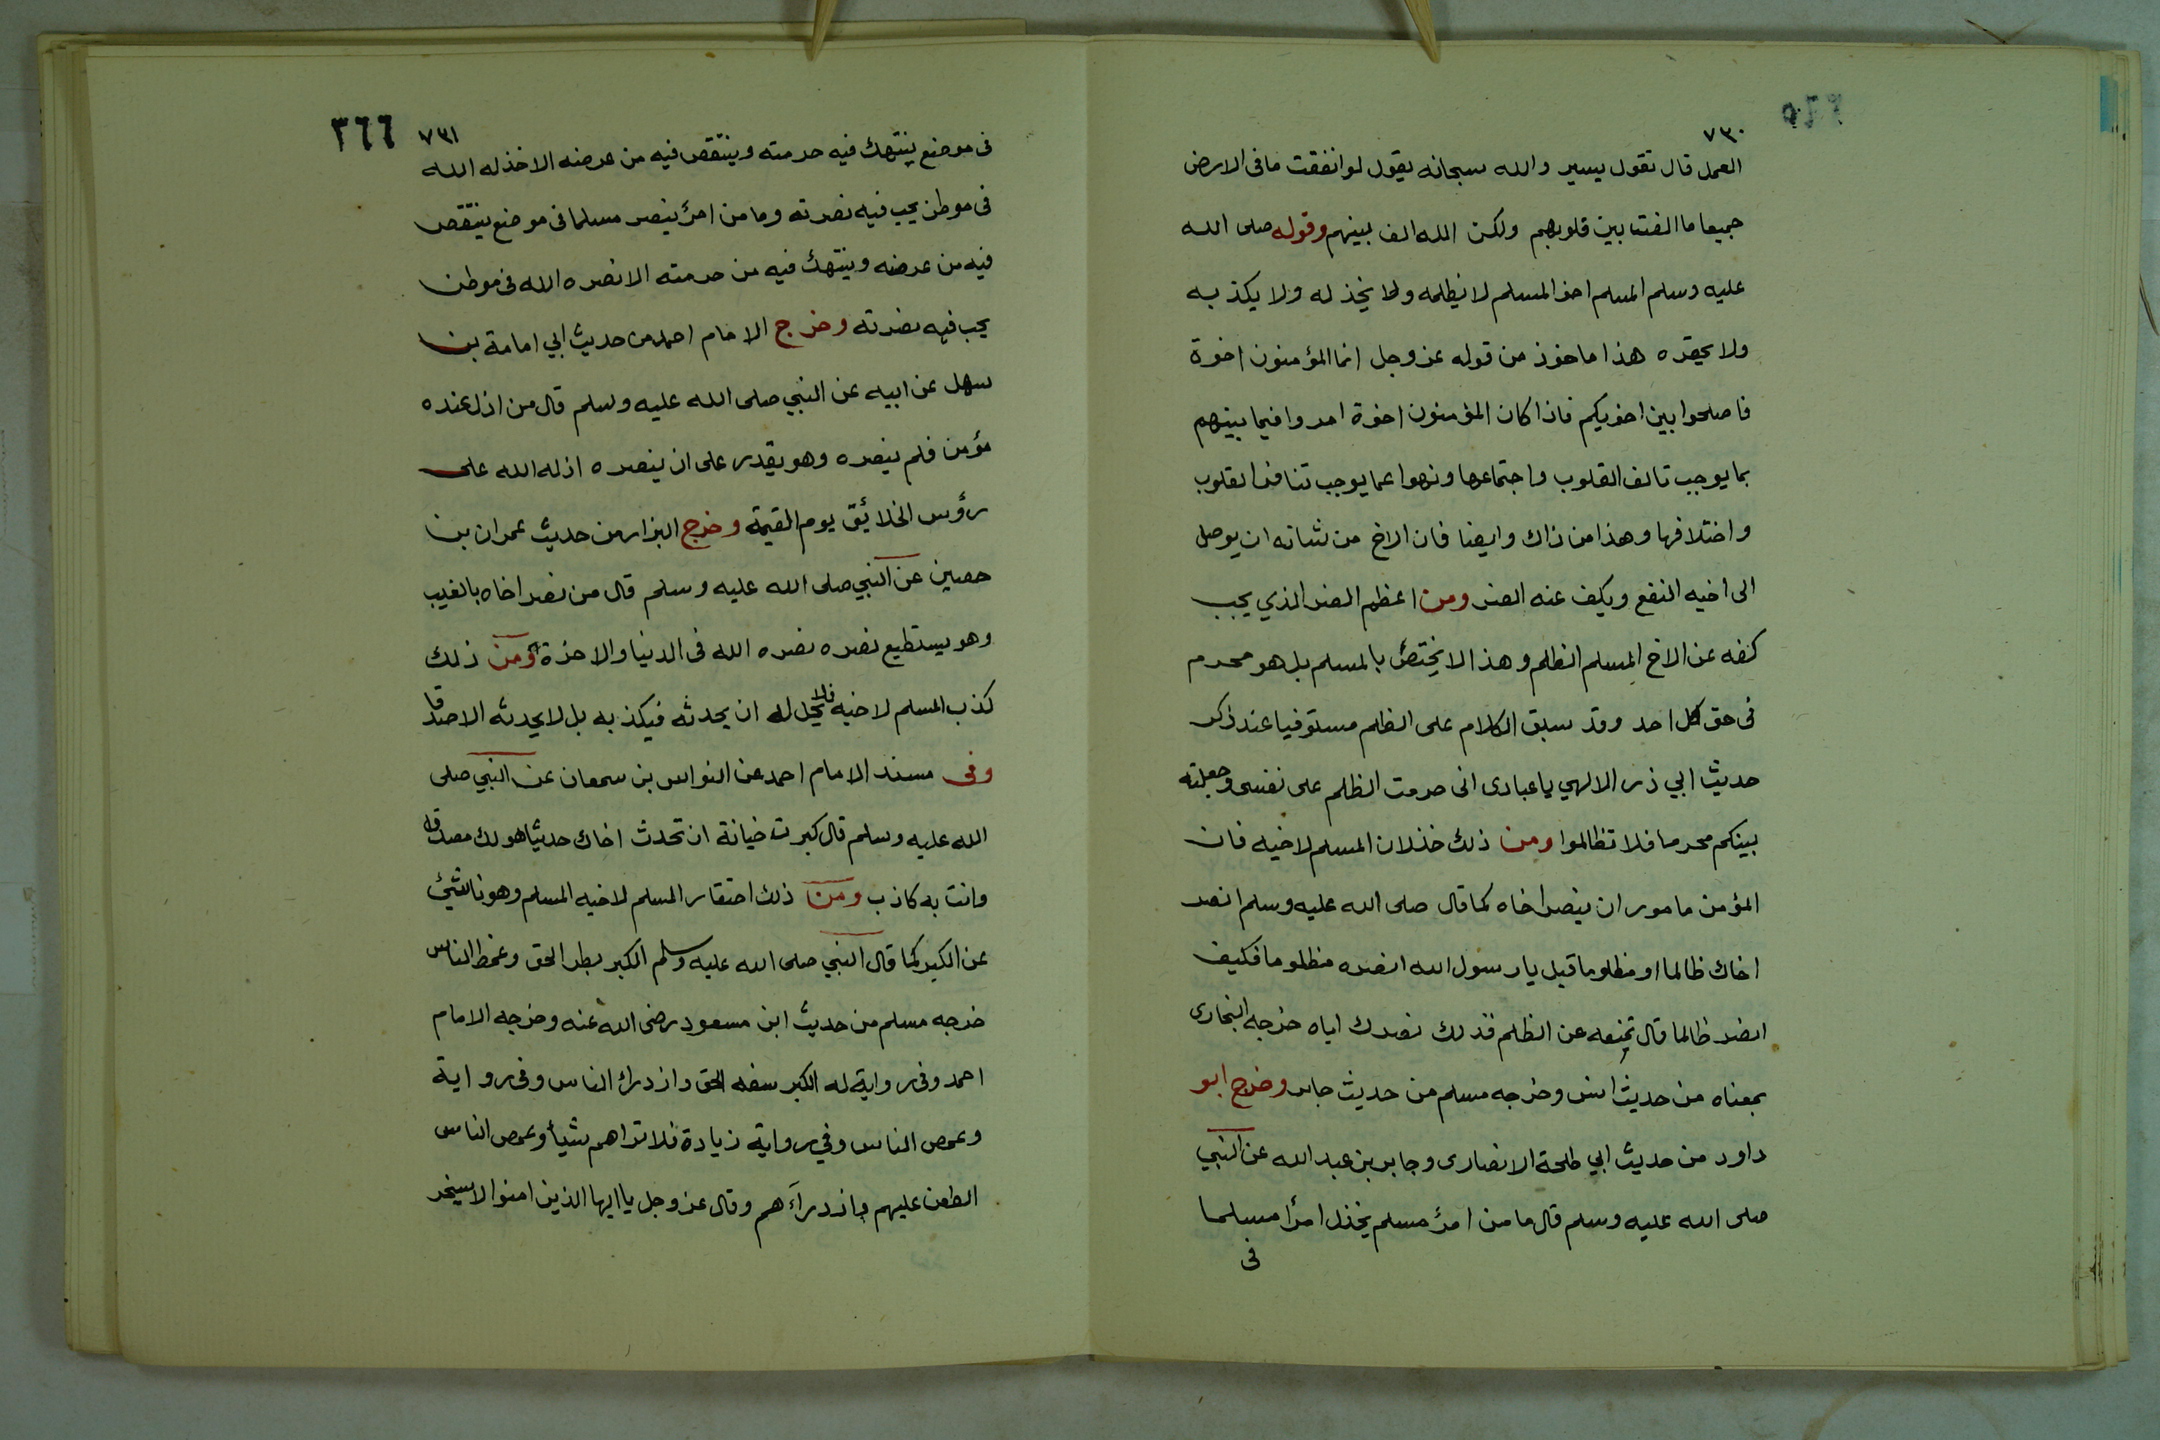 ٧٣٠
العمل قال تقول يسير والله سبحانه يقول لو انفقت ما فى الارض
جميعا ما الفت بين قلوبهم ولكن الله الف بينهم وقوله صلى الله
عليه وسلم المسلم اخو المسلم لا يظلمه ولا يخذله ولا يكذبه
ولا يحقره هذا ماخوذ من قوله عز وجل انما المؤمنون اخوة
فاصلحوا بين اخويكم فاذا كان المؤمنون اخوة امروا فيما بينهم
بما يوجب تالف القلوب واجتماعها ونهوا عما يوجب تنافر القلوب
واختلافها وهذا من ذاك وايضا فان الاخ من شانه ان يوصل
الى اخيه النفع ويكف عنه الضر ومن اعظم الضر الذي يجب
كفه عن الاخ المسلم الظلم وهذا لا يختص بالمسلم بل هو محرم
فى حق كل احد وقد سبق الكلام على الظلم مستوفيا عند ذكر
حديث ابي ذر الالهي يا عبادى انى حرمت الظلم على نفسى وجعلته
بينكم محرما فلا تظالموا ومن ذلك خذلان المسلم لاخيه فان
المؤمن مامور ان ينصر اخاه كما قال صلى الله عليه وسلم انصر
اخاك ظالما او مظلوما قيل يا رسول الله انصره مظلوما فكيف
انصر ظالما قال تمنعه عن الظلم فذلك نصرك اياه خرجه البخارى
بمعناه من حديث انس وخرجه مسلم من حديث جابر وخرج ابو
داود من حديث ابي طلحة الانصارى وجابر بن عبد الله عن النبي
صلى الله عليه وسلم قال ما من امرئ مسلم يخذل امرأ مسلما
فى
٣٦٦
٧٣١
فى موضع ينتهك فيه حرمته وينتقص فيه من عرضه الا خذله الله
فى موطن يحب فيه نصرته وما من امرئ ينصر مسلما فى موضع ينتقص
فيه من عرضه وينتهك فيه من حرمته الا نصره الله فى موطن
يحب فيه نصرته وخرج الامام احمد من حديث ابي امامة بن
سهل عن ابيه عن النبي صلى الله عليه وسلم قال من اذل عنده
مؤمن فلم ينصره وهو يقدر على ان ينصره اذله الله على
رؤس الخلائق يوم القيمة وخرج البزار من حديث عمران بن
حصين عن النبي صلى الله عليه وسلم قال من نصر اخاه بالغيب
وهو يستطيع نصره نصره الله فى الدنيا والاخرة ومن ذلك
كذب المسلم لاخيه فلا يحل له ان يحدثه فيكذبه بل لا يحدثه الا صدقا
وفى مسند الامام احمد عن النواس بن سمعان عن النبي صلى
الله عليه وسلم قال كبرت خيانة ان تحدث اخاك حديثا هو لك مصدق
وانت به كاذب ومن ذلك احتقار المسلم لاخيه المسلم وهو ناشئ
عن الكبر كما قال النبي صلى الله عليه وسلم الكبر بطر الحق وغمط الناس
خرجه مسلم من حديث ابن مسعود رضى الله عنه وخرجه الامام
احمد وفى رواية له الكبر سفه الحق وازدراء الناس وفى رواية
وغمص الناس وفي رواية زيادة فلا تراهم شيأ وغمص الناس
الطعن عليهم وازدراءهم وقال عز وجل يا ايها الذين امنوا لا يسخر